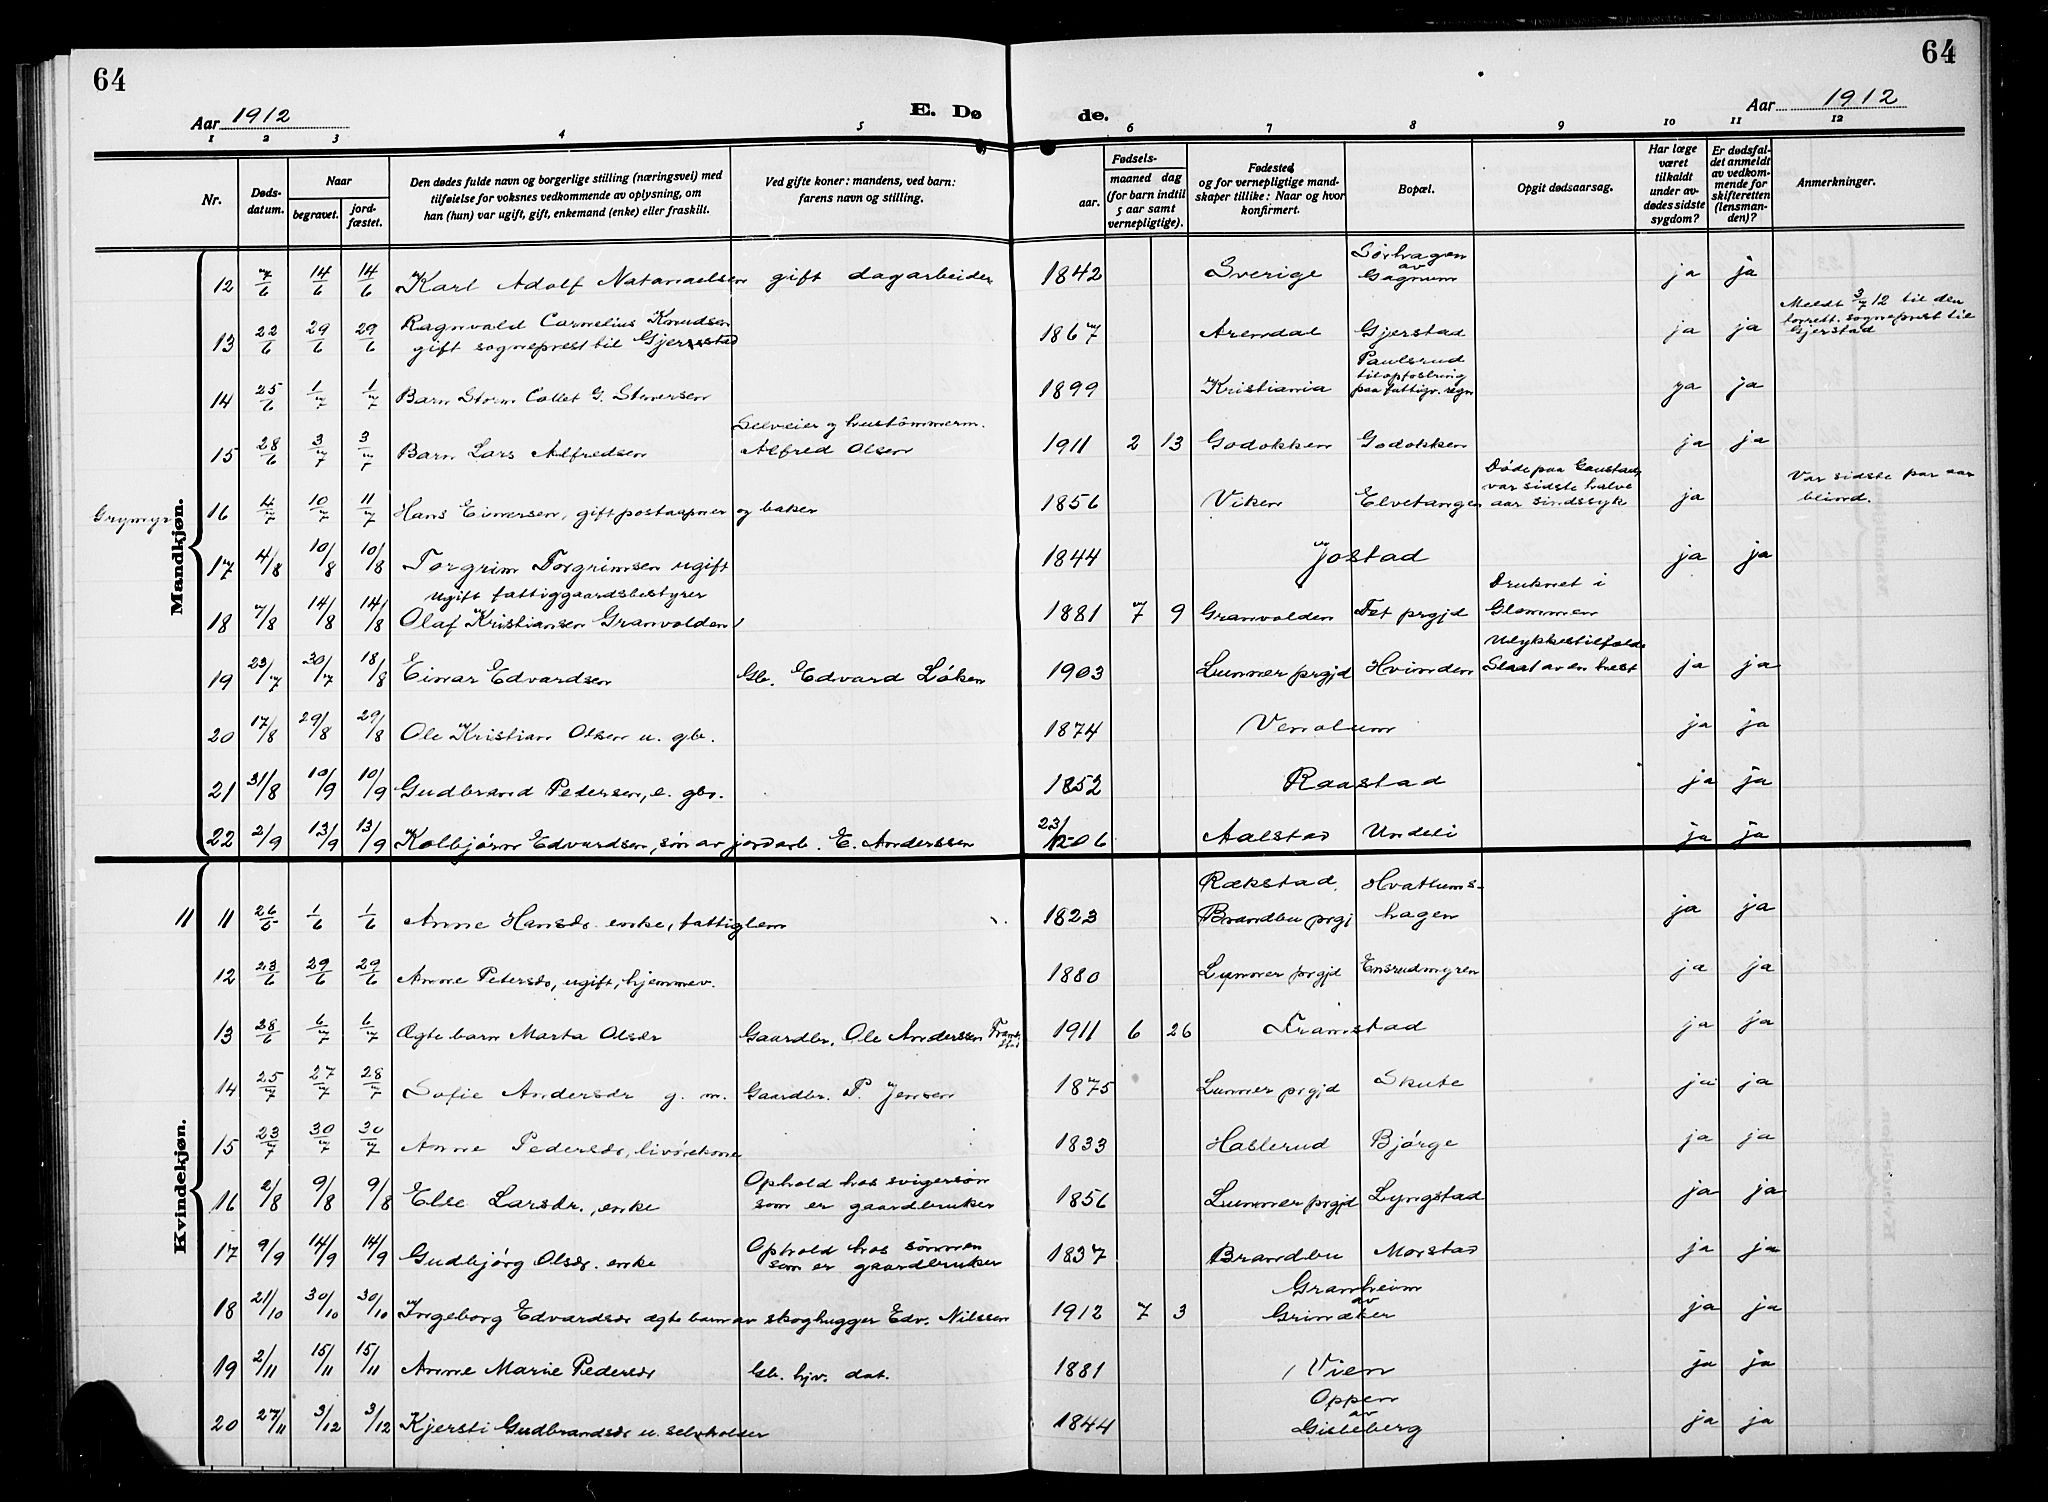 64
64
Aar 1912
E. Dø
de.
Aar 1912
1 2 3 4 5 6 7 8 9 10 11 12
Nr.
Døds-
datum.
Naar
begravet.
jord-
fæstet.
Den dødes fulde navn og borgerlige stilling (næringsvei) med
tilføielse for voksnes vedkommende av oplysning, om
han (hun) var ugift, gift, enkemand (enke) eller fraskilt.
Ved gifte koner: mandens, ved barn:
farens navn og stilling.
Fødsels-
aar.
maaned dag
(for barn indtil
5 aar samt
vernepligtige).
Fødested,
og for vernepligtige mand-
skaper tillike: Naar og hvor
konfirmert.
Bopæl.
Opgit dødsaarsag.
Har læge
været
tilkaldt
under av-
dødes sidste
sygdom?
Er dødsfal-
det anmeldt
av vedkom-
mende for
skifteretten
(lensman-
den)?
Anmerkninger.
Mandkjøn.
12 7/6 14/6 14/6 Karl Adolf Natanaelsen gift dagarbeider 1842 Sverige Sørhagen av Gagnum ja ja
13 22/6 29/6 29/6 Ragnvald Cornelius Knudsen
gift sogneprest til Gjerstad 1867 Arendal Gjerstad ja ja Meldt 3/7 12 til den
forrett. sogneprest til
Gjerstad
14 25/6 1/7 1/7 Barn Storm Collet G. Stenersen 1899 Kristiania Paulsrud
til opfostring
paa fattigv. regn ja ja
15 28/6 3/7 3/7 Barn Lars Alfredsen Selveier og hustømmerm.
Alfred Olsen 1911 2 13 Godokken Godokken ja ja
Grymyr 16 4/7 10/7 11/7 Hans Einersen, gift postaapner og baker 1856 Viken Elvetangen Døde paa Gaustad,
var sidste halve
aar sindssyk ja Var sidste par aar
blind.
17 4/8 10/8 10/8 Torgrim Torgrimsen ugift 1844 Jostad ja ja
18 7/8 14/8 14/8 ugift fattiggaardsbestyrer
Olaf Kristiansen Granvolden 1881 7 9 Granvolden Fet prgjd Druknet i
Glommen
19 23/7 30/7 18/8 Einar Edvardsen Gb. Edvard Løken 1903 Lunner prgjd Hvinden Ulykkestilfælde
Slaat av en hest ja ja
20 17/8 29/8 29/8 Ole Kristian Olsen u. gb. 1874 Venolum ja ja
21 31/8 10/9 10/9 Gudbrand Pedersen, e. gbr. 1852 Raastad ja ja
22 2/9 13/9 13/9 Kolbjørn Edvardsen, søn av jordarb. E. Anderssen 23/12 06 Aalstad Undeli ja ja
Kvindekjøn.
11 11 26/5 1/6 1/6 Anne Hansdr. enke, fattiglem 1823 Rækstad,
Brandbu prgj Hvattums-
hagen ja ja
12 23/6 29/6 29/6 Anne Petersdr, ugift, hjemmev. 1880 Lunner prgjd Ensrudmyren ja ja
13 28/6 6/7 6/7 Ægte barn Marta Olsdr Gaardbr. Ole Anderssen Framstad 1911 6 26 Framstad ja ja
14 25/7 27/7 28/7 Sofie Andersdr g. m. Gaardbr. P. Jensen 1875 Lunner prgjd Skute ja ja
15 23/7 30/7 30/7 Anne Pedersdr, livørekone 1833 Haslerud Bjørge ja ja
16 2/8 9/8 9/8 Else Larsdr., enke Ophold hos svigersøn
som er gaardbruker 1856 Lunner prgjd Lyngstad ja ja
17 9/9 14/9 14/9 Gudbjørg Olsdr. enke Ophold hos sønnen
som er gaardbruker 1837 Brandbu Morstad ja ja
18 21/10 30/10 30/10 Ingeborg Edvardsdr ægte barn av skoghugger Edv. Nilssen 1912 7 3 Granheim
av
Grinaker ja ja
19 2/11 15/11 15/11 Anne Marie Pedersdr Gb. hjv. dat. 1881 Vien ja ja
20 27/11 3/12 3/12 Kjersti Gudbrandsdr u. selvholder 1844 Oppen
av
Gisleberg ja ja